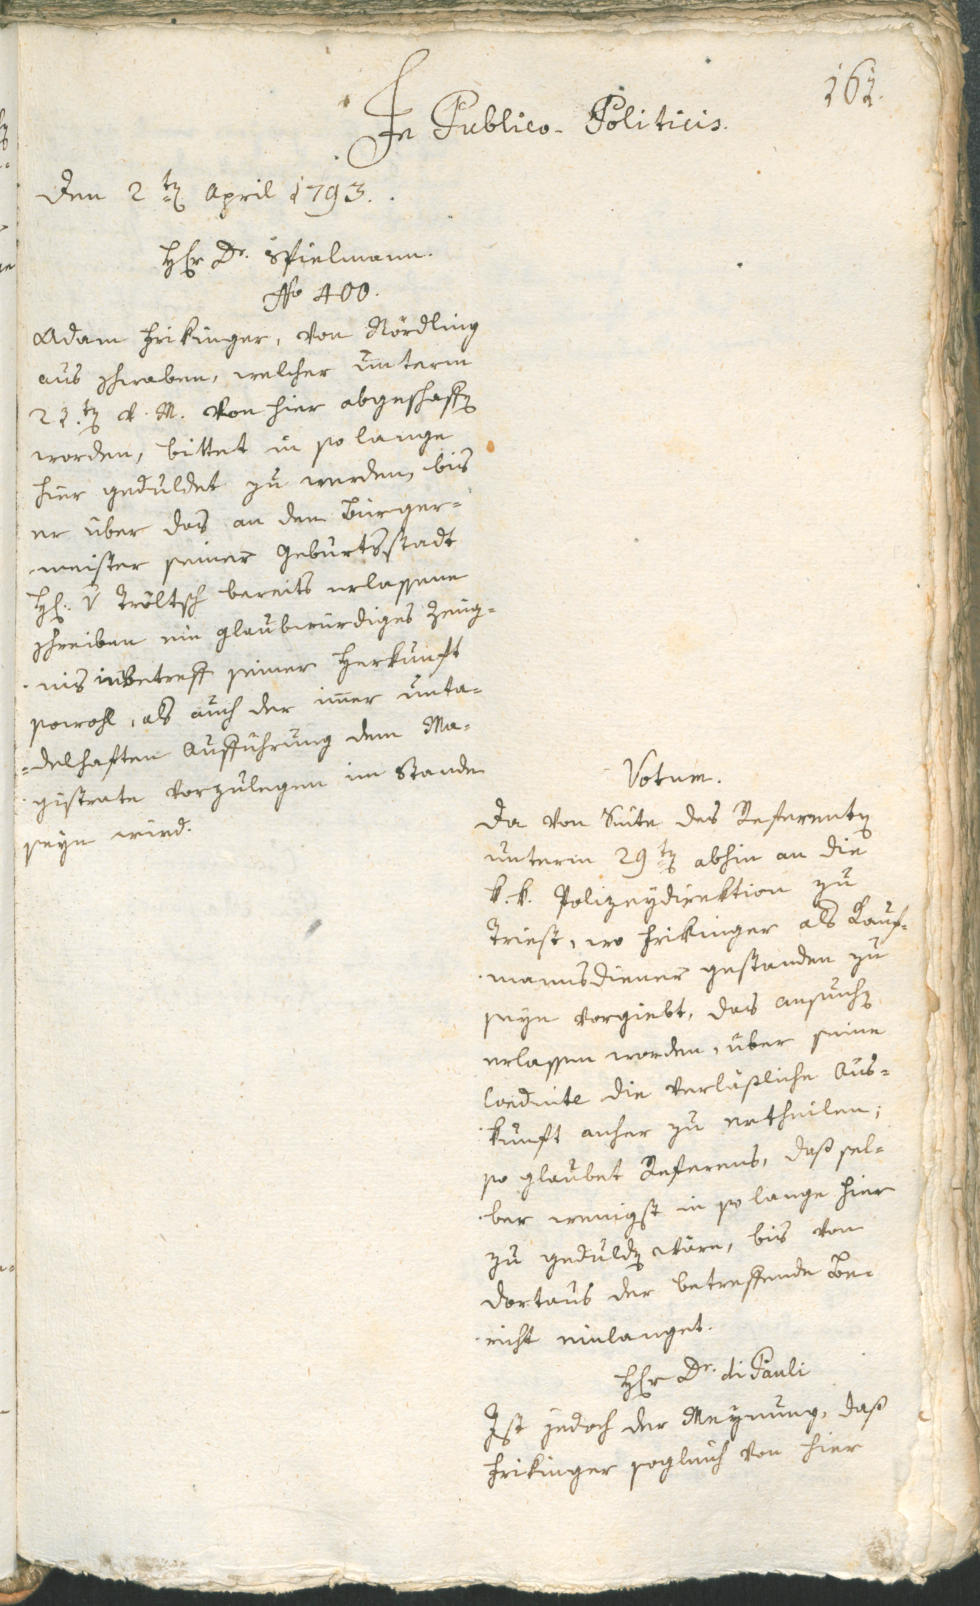 161.
In Publico-Politicis.
Den 2ten April 1793.
Herr Dr. Spielmann.
No 400.
Adam Frikinger, von Nördling
aus Schwaben, welcher unterm
21.ten v. M. von hier abgeschaffen
worden, bittet in so lange
hier geduldet zu werden, bis
er über das an den Bürger=
meister seiner Geburtsstadt
H. v Tröltsch bereits erlassene
Schreiben ein glaubwürdiges Zeug=
nis inbetreff seiner Herkunft
sowohl, als auch der immer unta=
=delhaften Aufführung dem Ma=
gistrate vorzulegen im Stande
seyn wird.
Votum.
Da von Seite des Referenten
unterm 29ten abhin an die
k. k. Polizeydirektion zu
Triest, wo Frikinger als Kauf=
mannsdiener gestanden zu
seyn vorgiebt, das Ansuchen
erlassen worden, über seine
Conduite die verläßliche Aus=
kunft anher zu ertheilen;
so glaubet Referens, daß sel=
ber wenigst in so lange hier
zu gedulden wäre, bis von
dortaus der betreffende Be=
richt einlanget.
Herr Dr. di Pauli
Ist jedoch der Meynung, daß
Frikinger sogleich von hier